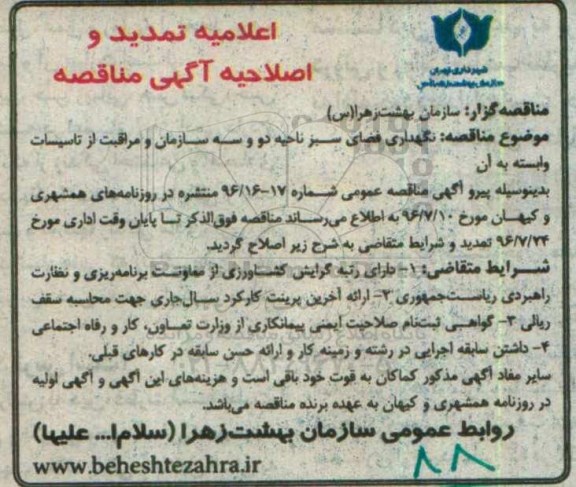 اعلامیه تمدید و
اصلاحیه آگهی مناقصه
شهرداری تهران
سازمان بهشت زهرا (س)
مناقصه‌گزار: سازمان بهشت‌زهرا(س)
موضوع مناقصه: نگهداری فضای سبز ناحیه دو و سه سازمان و مراقبت از تاسیسات
وابسته به آن
بدینوسیله پیرو آگهی مناقصه عمومی شماره ۱۷-۹۶/۱۶ منتشره در روزنامه‌های همشهری
و کیهان مورخ ۹۶/۷/۱۰ به اطلاع می‌رساند مناقصه فوق‌الذکر تا پایان وقت اداری مورخ
۹۶/۷/۲۴ تمدید و شرایط متقاضی به شرح زیر اصلاح گردید.
شرایط متقاضی: ۱- دارای رتبه گرایش کشاورزی از معاونت برنامه‌ریزی و نظارت
راهبردی ریاست‌جمهوری ۲- ارائه آخرین پرینت کارکرد سال‌جاری جهت محاسبه سقف
ریالی ۳- گواهی ثبت‌نام صلاحیت ایمنی پیمانکاری از وزارت تعاون، کار و رفاه اجتماعی
۴- داشتن سابقه اجرایی در رشته و زمینه کار و ارائه حسن سابقه در کارهای قبلی.
سایر مفاد آگهی مذکور کماکان به قوت خود باقی است و هزینه‌های این آگهی و آگهی اولیه
در روزنامه همشهری و کیهان به عهده برنده مناقصه می‌باشد.
روابط عمومی سازمان بهشت‌زهرا (سلام‌ا... علیها)
www.beheshtezahra.ir
۸۸